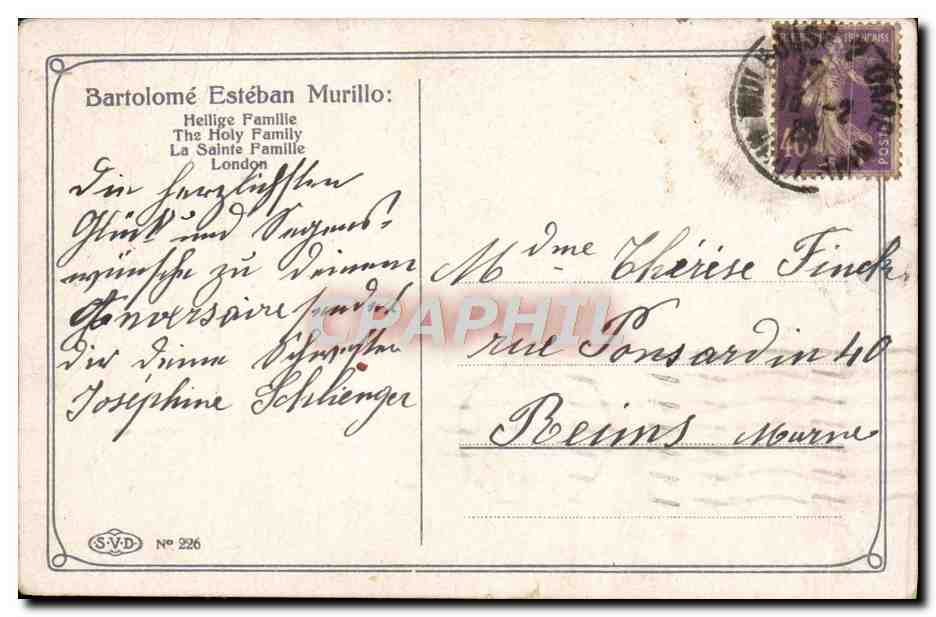 Bartolomé Estéban Murillo:
Heilige Familie
The Holy Family
La Sainte Famille
London
Die herzlichsten
Glück und Segens-
wünsche zu deinem
Aniversaire sendet
dir deine Schwester
Joséphine Schlienger
S.V.D.
No 226
CPAPHIL
FRANÇAISE
40
POSTES
GARE
Mdme Thérèse Finck
rue Ponsardin 40
Reims Marne